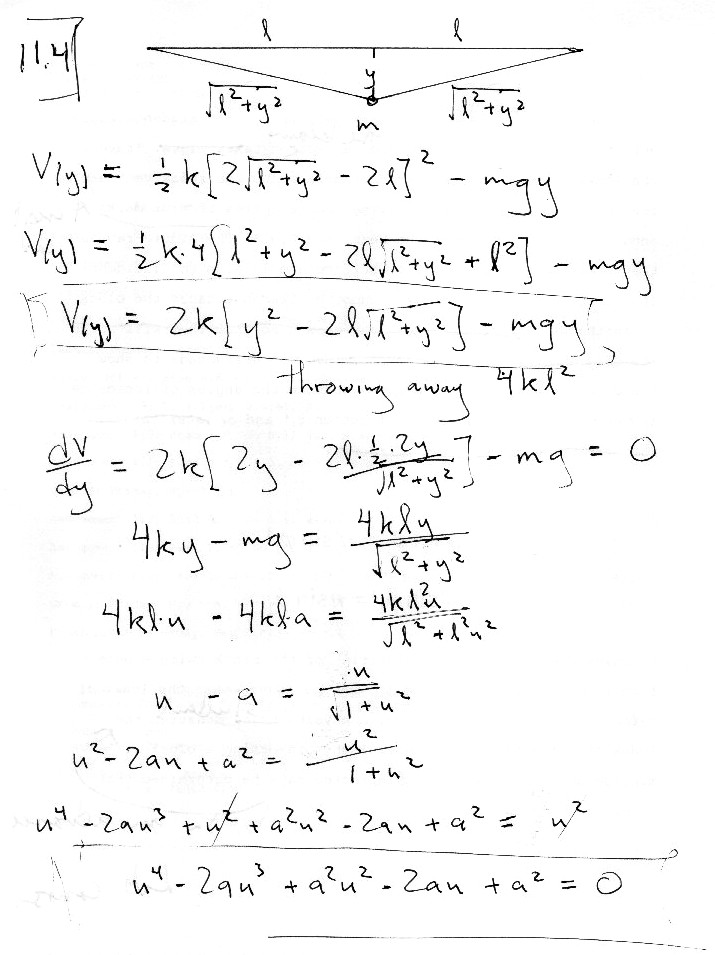 11.4
l l
√(l²+y²) y √(l²+y²)
m
V(y) = ½k[2√(l²+y²) - 2l]² - mgy
V(y) = ½k·4[l²+y² - 2l√(l²+y²) + l²] - mgy
V(y) = 2k[y² - 2l√(l²+y²)] - mgy
throwing away 4kl²
dV/dy = 2k[2y - 2l·½·2y/√(l²+y²)] - mg = 0
4ky - mg = 4kly/√(l²+y²)
4kl·u - 4kl·a = 4kl²u/√(l²+l²u²)
u - a = u/√(1+u²)
u² - 2au + a² = u²/(1+u²)
u⁴ - 2au³ + u² + a²u² - 2au + a² = u²
u⁴ - 2au³ + a²u² - 2au + a² = 0